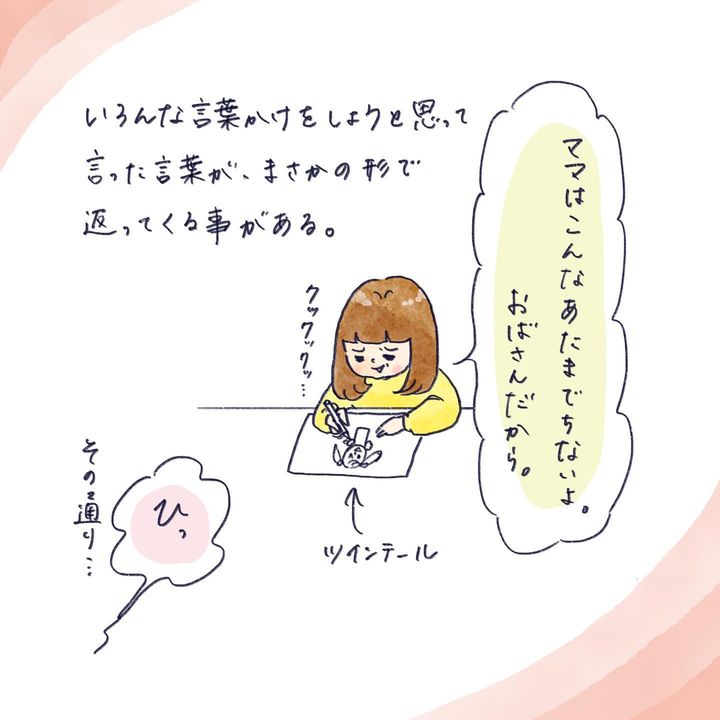 いろんな言葉かけをしようと思って
言った言葉が、まさかの形で
返ってくる事がある。
ママはこんなあたまでちないよ。
おばさんだから。
クックックッ…
ツインテール
ひっ
その通り…